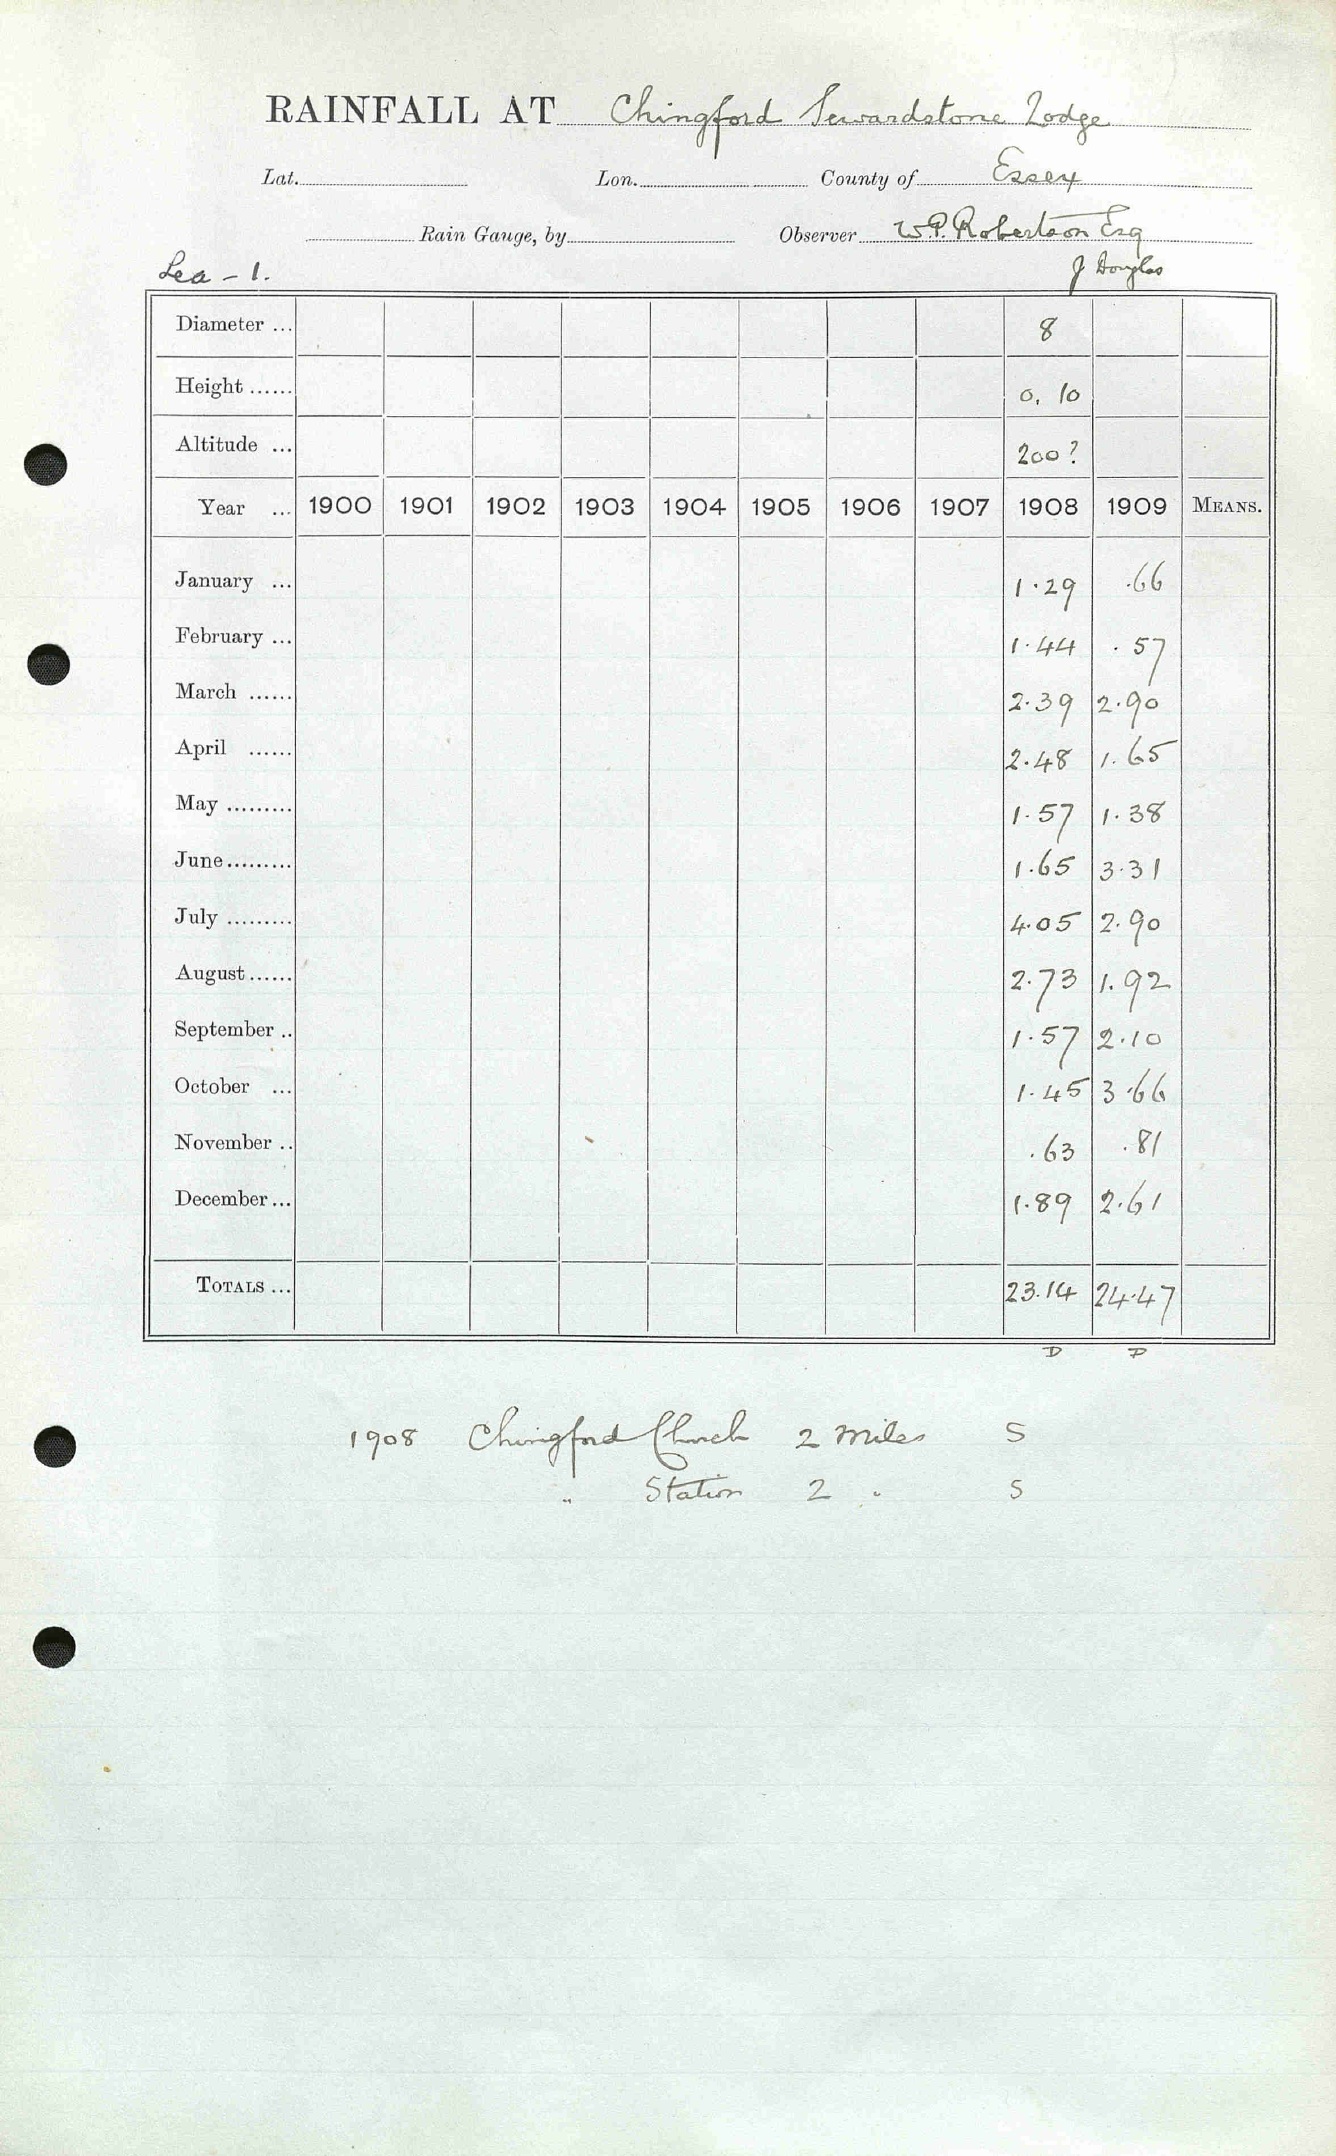 RAINFALL AT Chingford Sewardstone Lodge
Lat. Lon. County of Essex
Rain Gauge, by Observer W.P. Robertson Esq
Lea - 1. J Douglas
Diameter ... 8
Height ...... 0. 10
Altitude ... 200?
Year ... 1900 1901 1902 1903 1904 1905 1906 1907 1908 1909 MEANS.
January ... 1.29 .66
February ... 1.44 .57
March ...... 2.39 2.90
April ...... 2.48 1.65
May ......... 1.57 1.38
June ......... 1.65 3.31
July ......... 4.05 2.90
August ...... 2.73 1.92
September .. 1.57 2.10
October ... 1.45 3.66
November .. .63 .81
December ... 1.89 2.61
TOTALS ... 23.14 24.47
D D
1908 Chingford Church 2 miles S
" Station 2 " S